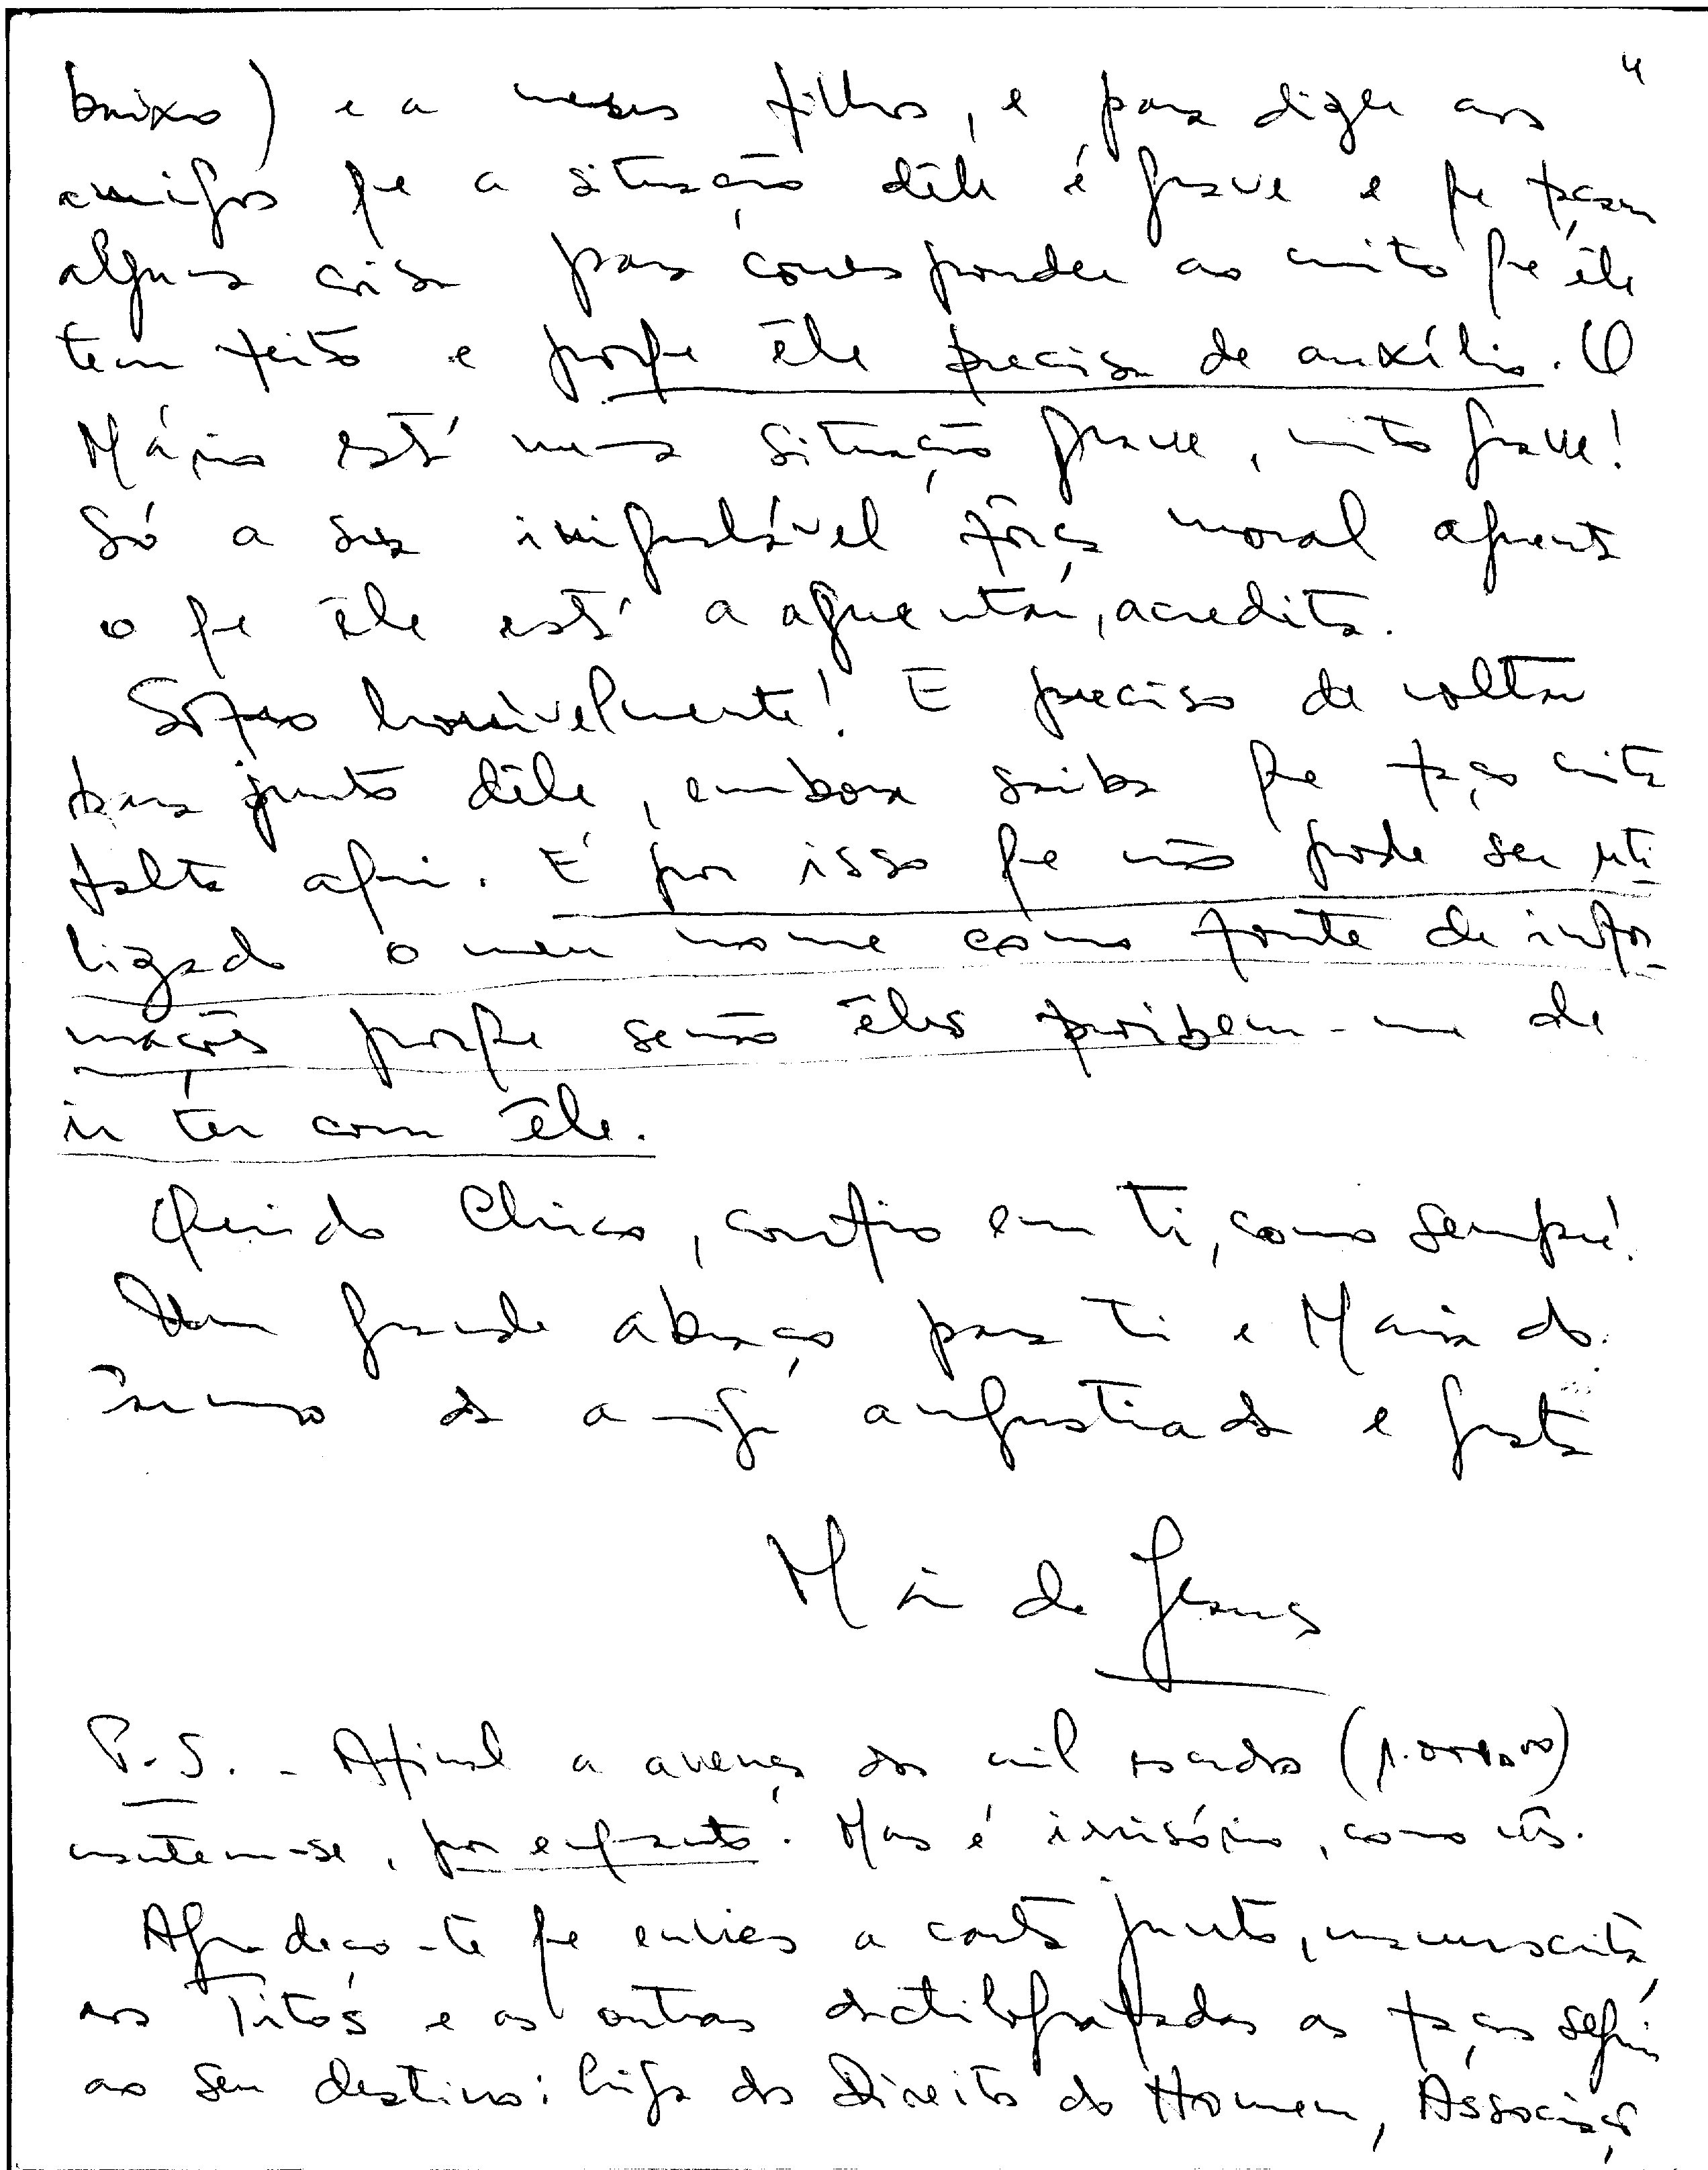 4
baixo) e a meus filhos, e para dizer aos
amigos que a situação dêle é grave e que façam
alguma coisa para corresponder ao muito que êle
tem feito e porque êle precisa de auxílio. O
Mário está numa situação grave, muito grave!
Só a sua inigualável fôrça moral aguenta
o que êle está a aguentar, acredita.
Sofro horrivelmente! E preciso de voltar
para junto dêle, embora saiba que faço muita
falta aqui. É por isso que não pode ser uti
lizado o meu nome como fonte de infor-
mações porque senão êles proíbem-me de
ir ter com êle.
Querido Chico, confio em ti, como sempre!
Um grande abraço para ti e Maria do
da amiga angustiada e grata
Mª de Jesus
P.S. - Afinal a avença dos mil escudos (1.000$00)
mantem-se, por enquanto. Mas é irrisório, como vês.
Agradeço-te que envies a carta junta, manuscrita,
aos Titos e as outras dactilografadas as faças seguir
ao seu destino: Liga dos Direitos do Homem, Associaçõ